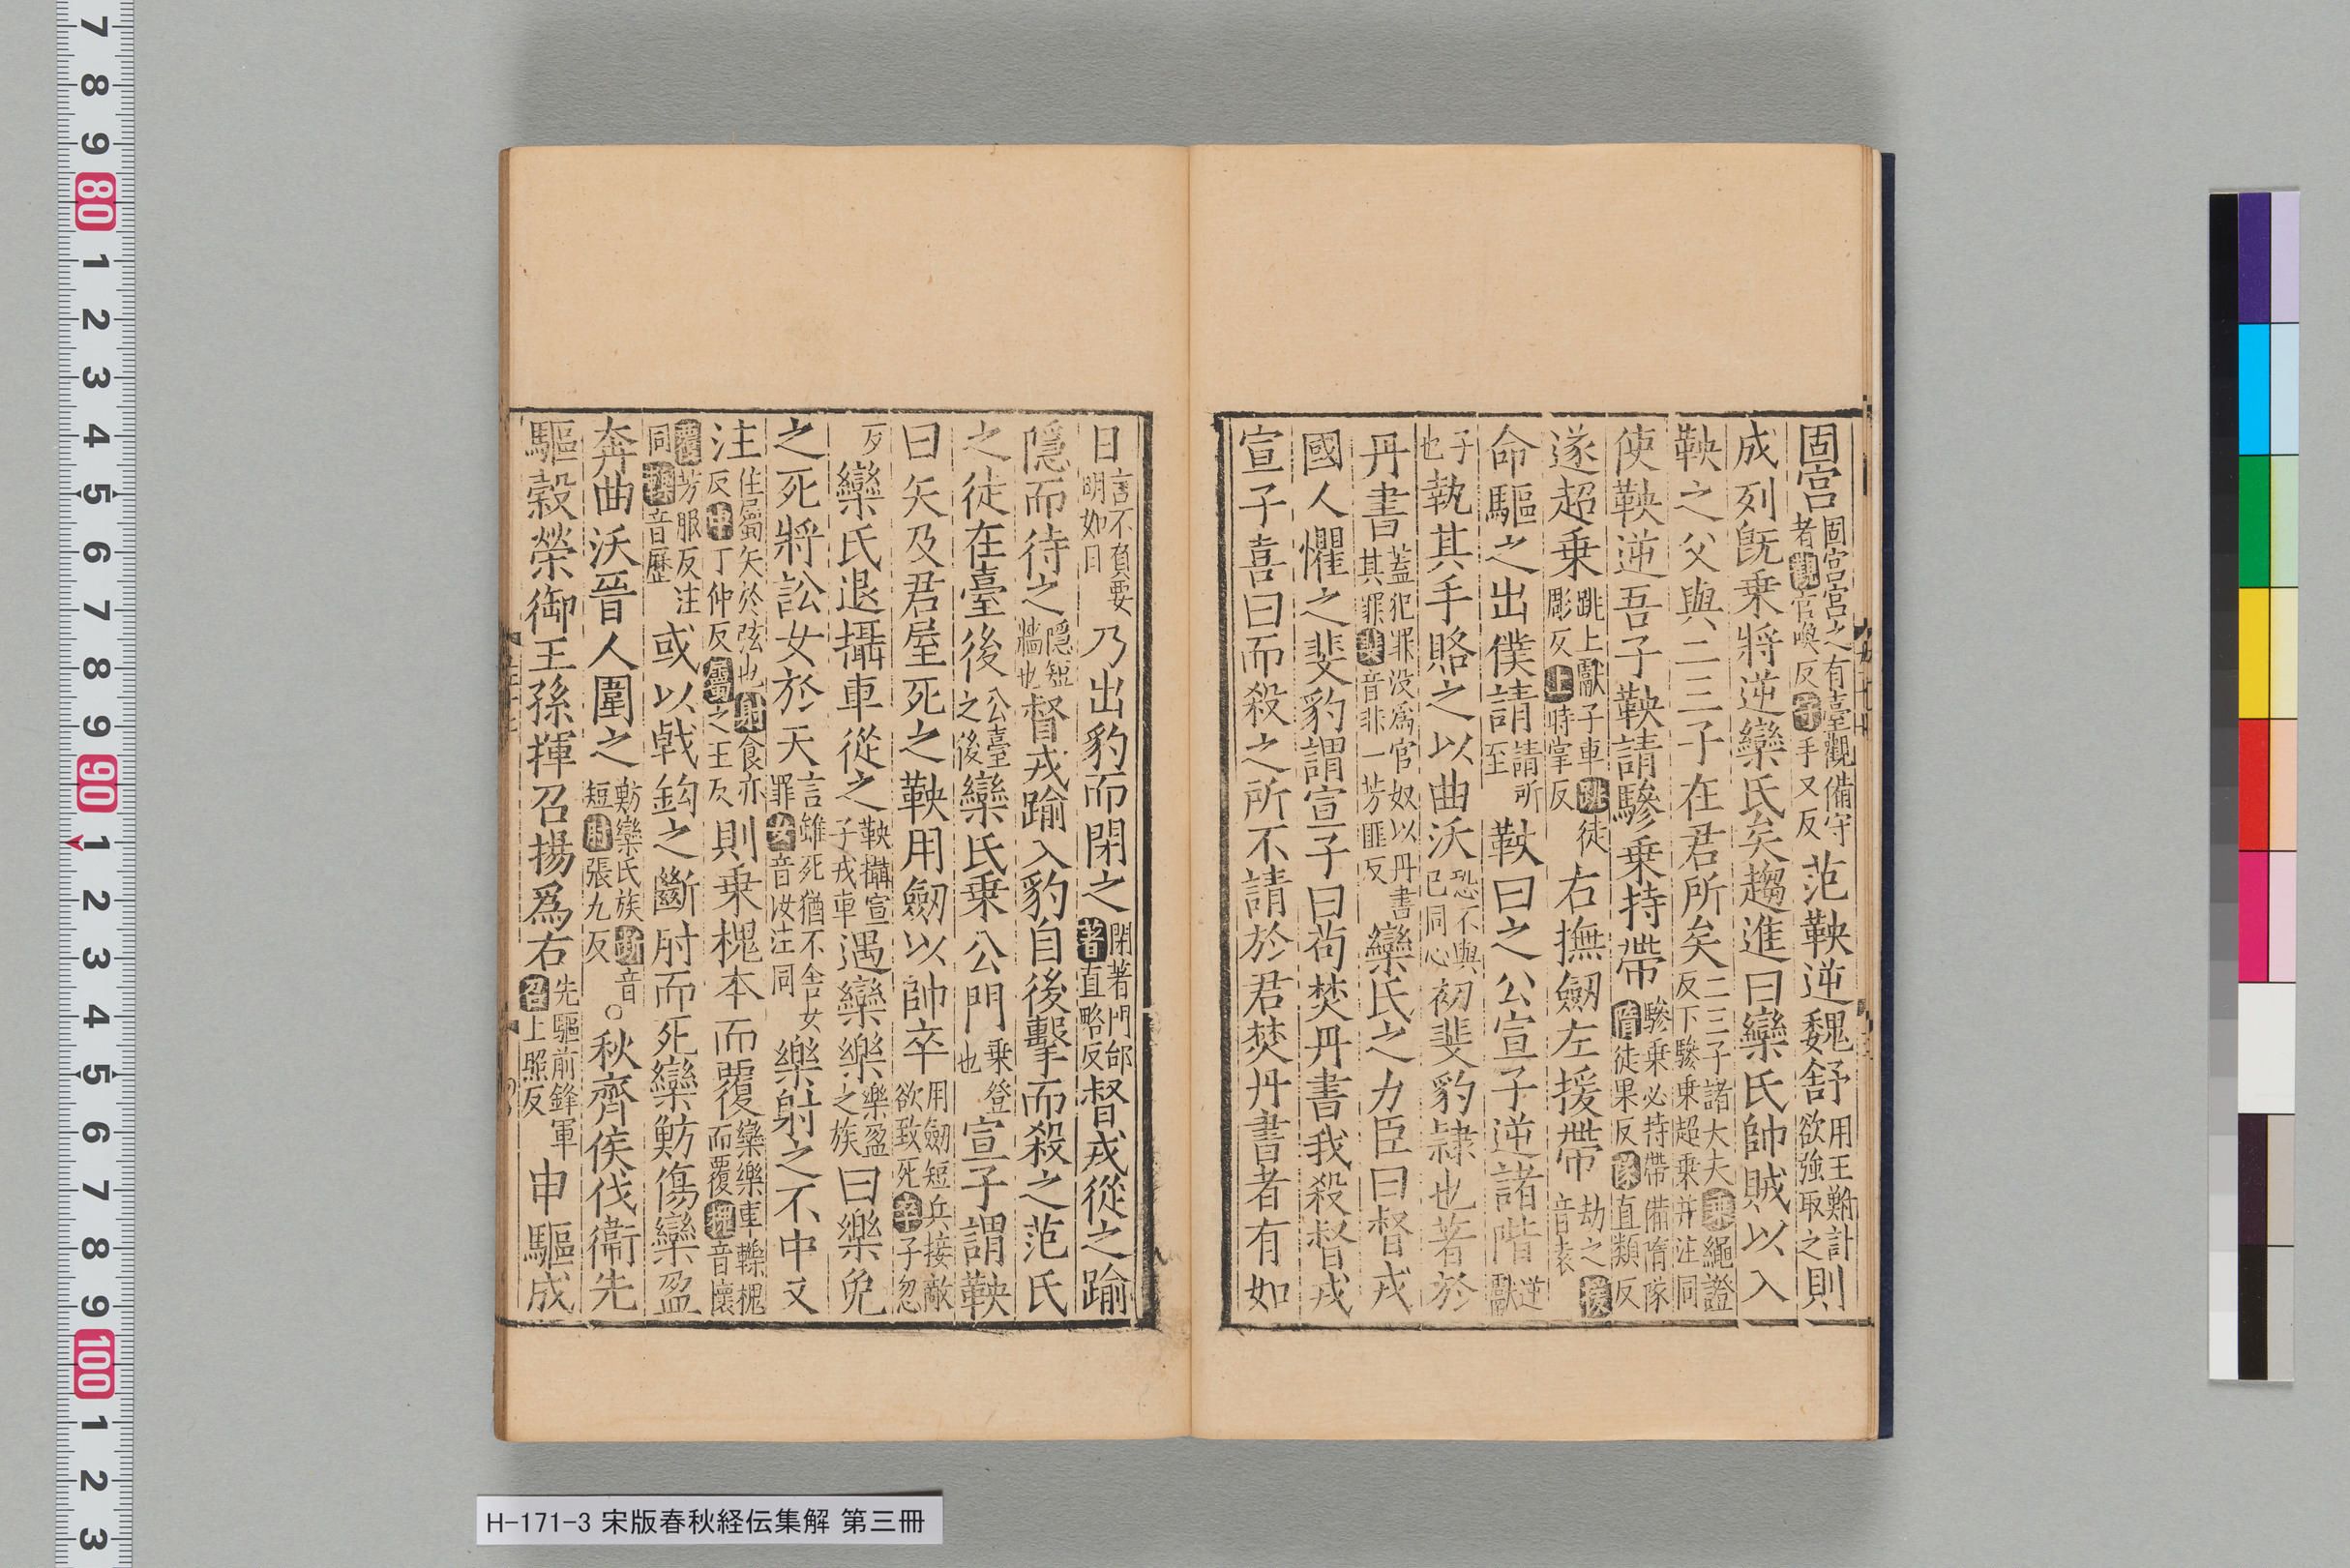 固宮固宮宮之有臺觀備守者觀官喚反守手又反范鞅逆魏舒用王鮒計欲強取之則
成列旣乗將逆欒氏矣趨進曰欒氏帥賊以入
鞅之父與二三子在君所矣二三子諸大夫乗繩證反下驂乗超乗并注同
使鞅逆吾子鞅請驂乗持帶驂乗必持帶備隋隊隋徒果反隊直類反
遂超乗跳上獻子車跳徒彫反上時掌反右撫劔左援帶劫之援音袁
命驅之出僕請請所至鞅曰之公宣子逆諸階逆獻
子也執其手賂之以曲沃恐不與已同心初斐豹隷也著於
丹書蓋犯罪没爲官奴以丹書其罪斐音非一芳匪反欒氏之力臣曰督戎
國人懼之斐豹謂宣子曰苟焚丹書我殺督戎
宣子喜曰而殺之所不請於君焚丹書者有如
日言不負要明如日乃出豹而閉之閉著門外著直略反督戎從之踰
隱而待之隱短牆也督戎踰入豹自後擊而殺之范氏
之徒在臺後公臺之後欒氏乗公門乗登也宣子謂鞅
曰矢及君屋死之鞅用劔以帥卒用劔短兵接敵欲致死卒子忽
反欒氏退攝車從之鞅攝宣子戎車遇欒樂樂盈之族曰樂免
之死將訟女於天言雖死猶不舍女罪女音汝注同樂射之不中又
注注屬矢於弦也射食亦反中丁仲反屬之玉反則乗槐本而覆欒樂車轢槐而覆槐音懷
覆芳服反注同轢音歷或以戟鈎之斷肘而死欒魴傷欒盈
奔曲沃晉人圍之魴欒氏族斷音短肘張九反○秋齊侯伐衞先
驅榖榮御王孫揮召揚爲右先驅前鋒軍召上照反申驅成
80
90
100
H-171-3 宋版春秋経伝集解 第三冊